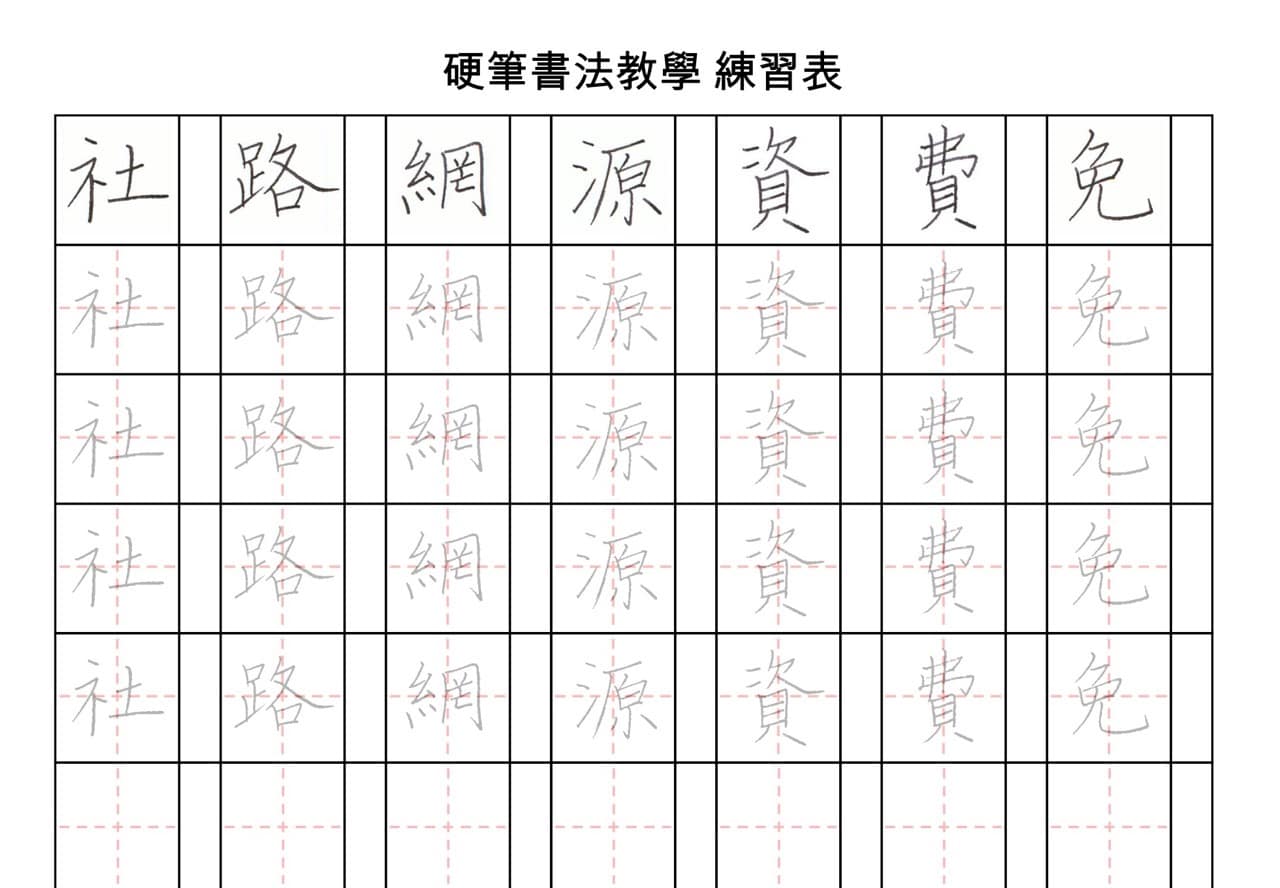 硬筆書法教學 練習表
社路網源資費免
社路網源資費免
社路網源資費免
社路網源資費免
社路網源資費免